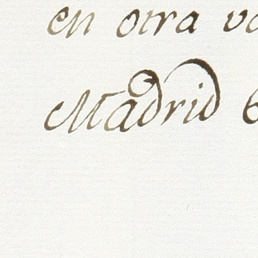 en otra
Madrid